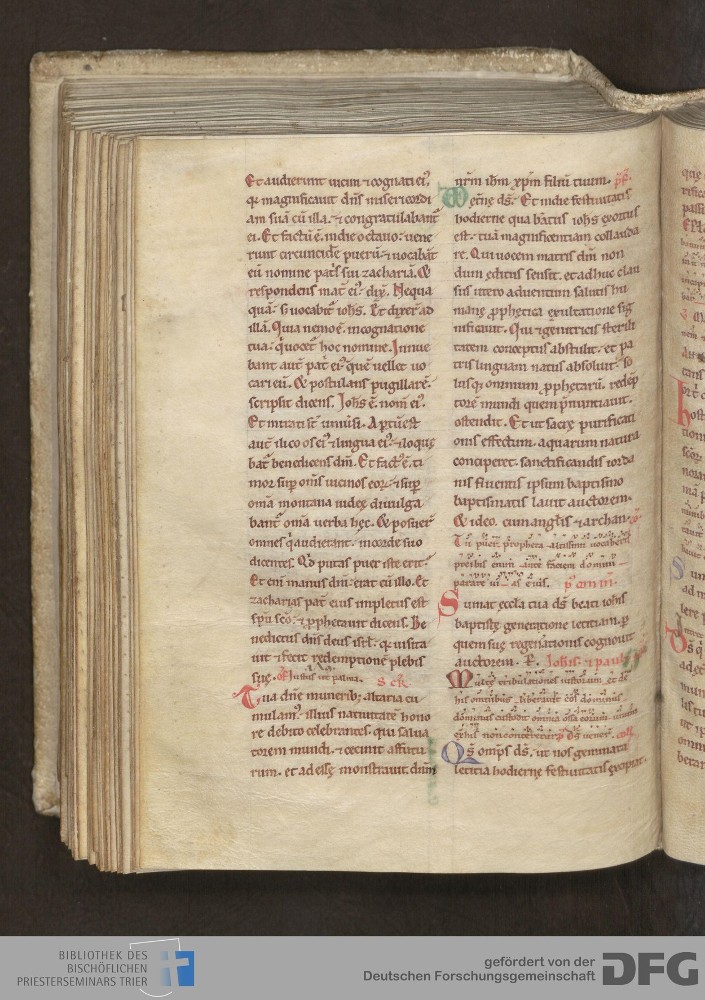 Et audierunt uicini ⁊ cognati ei᷒.
q̇ magnificauit dn̄s misericordi
am suā cū illa. ⁊ congratulabant᷑
ei. Et factū ē. indie octauo: uene
runt circuncidē puerū. ⁊ uocabāt
eū nomine pat᷑s sui zachariā. Et
respondens mat᷑ ei᷒. dix̄. Nequa
quā. sꝫ uocabit᷑ ioh̄s. Et dixer̄ ad
illā. Quia nemo ē. incognatione
tua. q̇ uocet᷑ hoc nomine. Innue
bant aut̄ pat᷑i ei᷒. quē uellet uo
cari eū. Et postulans pugillarē.
scripsit dicens. Ioh̄s ē. nom̄ ei᷒.
Et mirati sт̄ uniu͛si. Aꝑtū est
aut̄ ilico os ei᷒ ⁊ lingua ei᷒. ⁊ loque
bat᷑ benedicens dm̄. Et fact᷒ ē. ti
mor suꝑ om̄s uicinos eoꝝ. ⁊ suꝑ
om̄a montana iudeę diuulga
bant᷑ om̄a uerba hęc. Et posuer̄
omnes q̇ audierant. incorde suo
dicentes. Qd̄ putas puer iste erit.
Et eni᷒ manus dn̄i erat cū illo. Et
zacharias pat᷑ eius impletus est
sp̄u sc̄o. ⁊ ꝓphetauit dicens. Be
nedictus dn̄s deus isrl̄. q̇ uisita
uit ⁊ fecit redemptionē plebis
suę. Iustus ut palma.
Tua dn̄e munerib; altaria cu
mulam᷒. illius natiuitatē hono
re debito celebrantes. qui salua
torem mundi. ⁊ cecinit affutu
rum. et adesse monstrauit. dn̄m
nr̄m ih̄m xp̄m filiū tuum. p̄f.
ęt̄nę ds̄. Et indie festiuitatis
hodierne qua b̄atus ioh̄s exortus
est. tuā magnificentiam collauda
re. Qui uocem matris dn̄i non
dum editus sensit. et adhuc clau
sus utero aduentum salutis hu
manę ꝓphetica exultatione sig
nificauit. Qui ⁊ genitricis sterili
tatem conceptus abstulit. et pa
tris linguam natus absoluit. so
lusq; omnium ꝓphetarū. redēp
torē mundi quem p̄nuntiauit.
ostendit. Et ut sacrę purificati
onis effectum. aquarum natura
conciperet. sanctificandis iorda
nis fluentis ipsum baptismo
baptismatis lauit auctorem.
Et ideo. cum angl̄is ⁊ archan.
Tu puer propheta altissimi uocaberis
preibis enim ante faciem domini
parare uias eius.
Sumat ęccl̄a tua ds̄ beati ioh̄is
baptistę generatione letitiam. ꝑ
quem suę regn̄ationis cognouit
auctorem. P̄. Ioh̄is ⁊ pauli
Multę tribulationes iustorum et de
his omnibus liberauit eos dominus
dominus custodit omnia ossa eorum unum
ex his non conteretur. Ds̄ uener. coll̄.
Q̄s omps̄ ds̄. ut nos geminata
letitia hodierne festiuitatis excipiat.
BIBLIOTHEK DES
BISCHÖFLICHEN
PRIESTERSEMINARS TRIER
gefördert von der
Deutschen Forschungsgemeinschaft
DFG